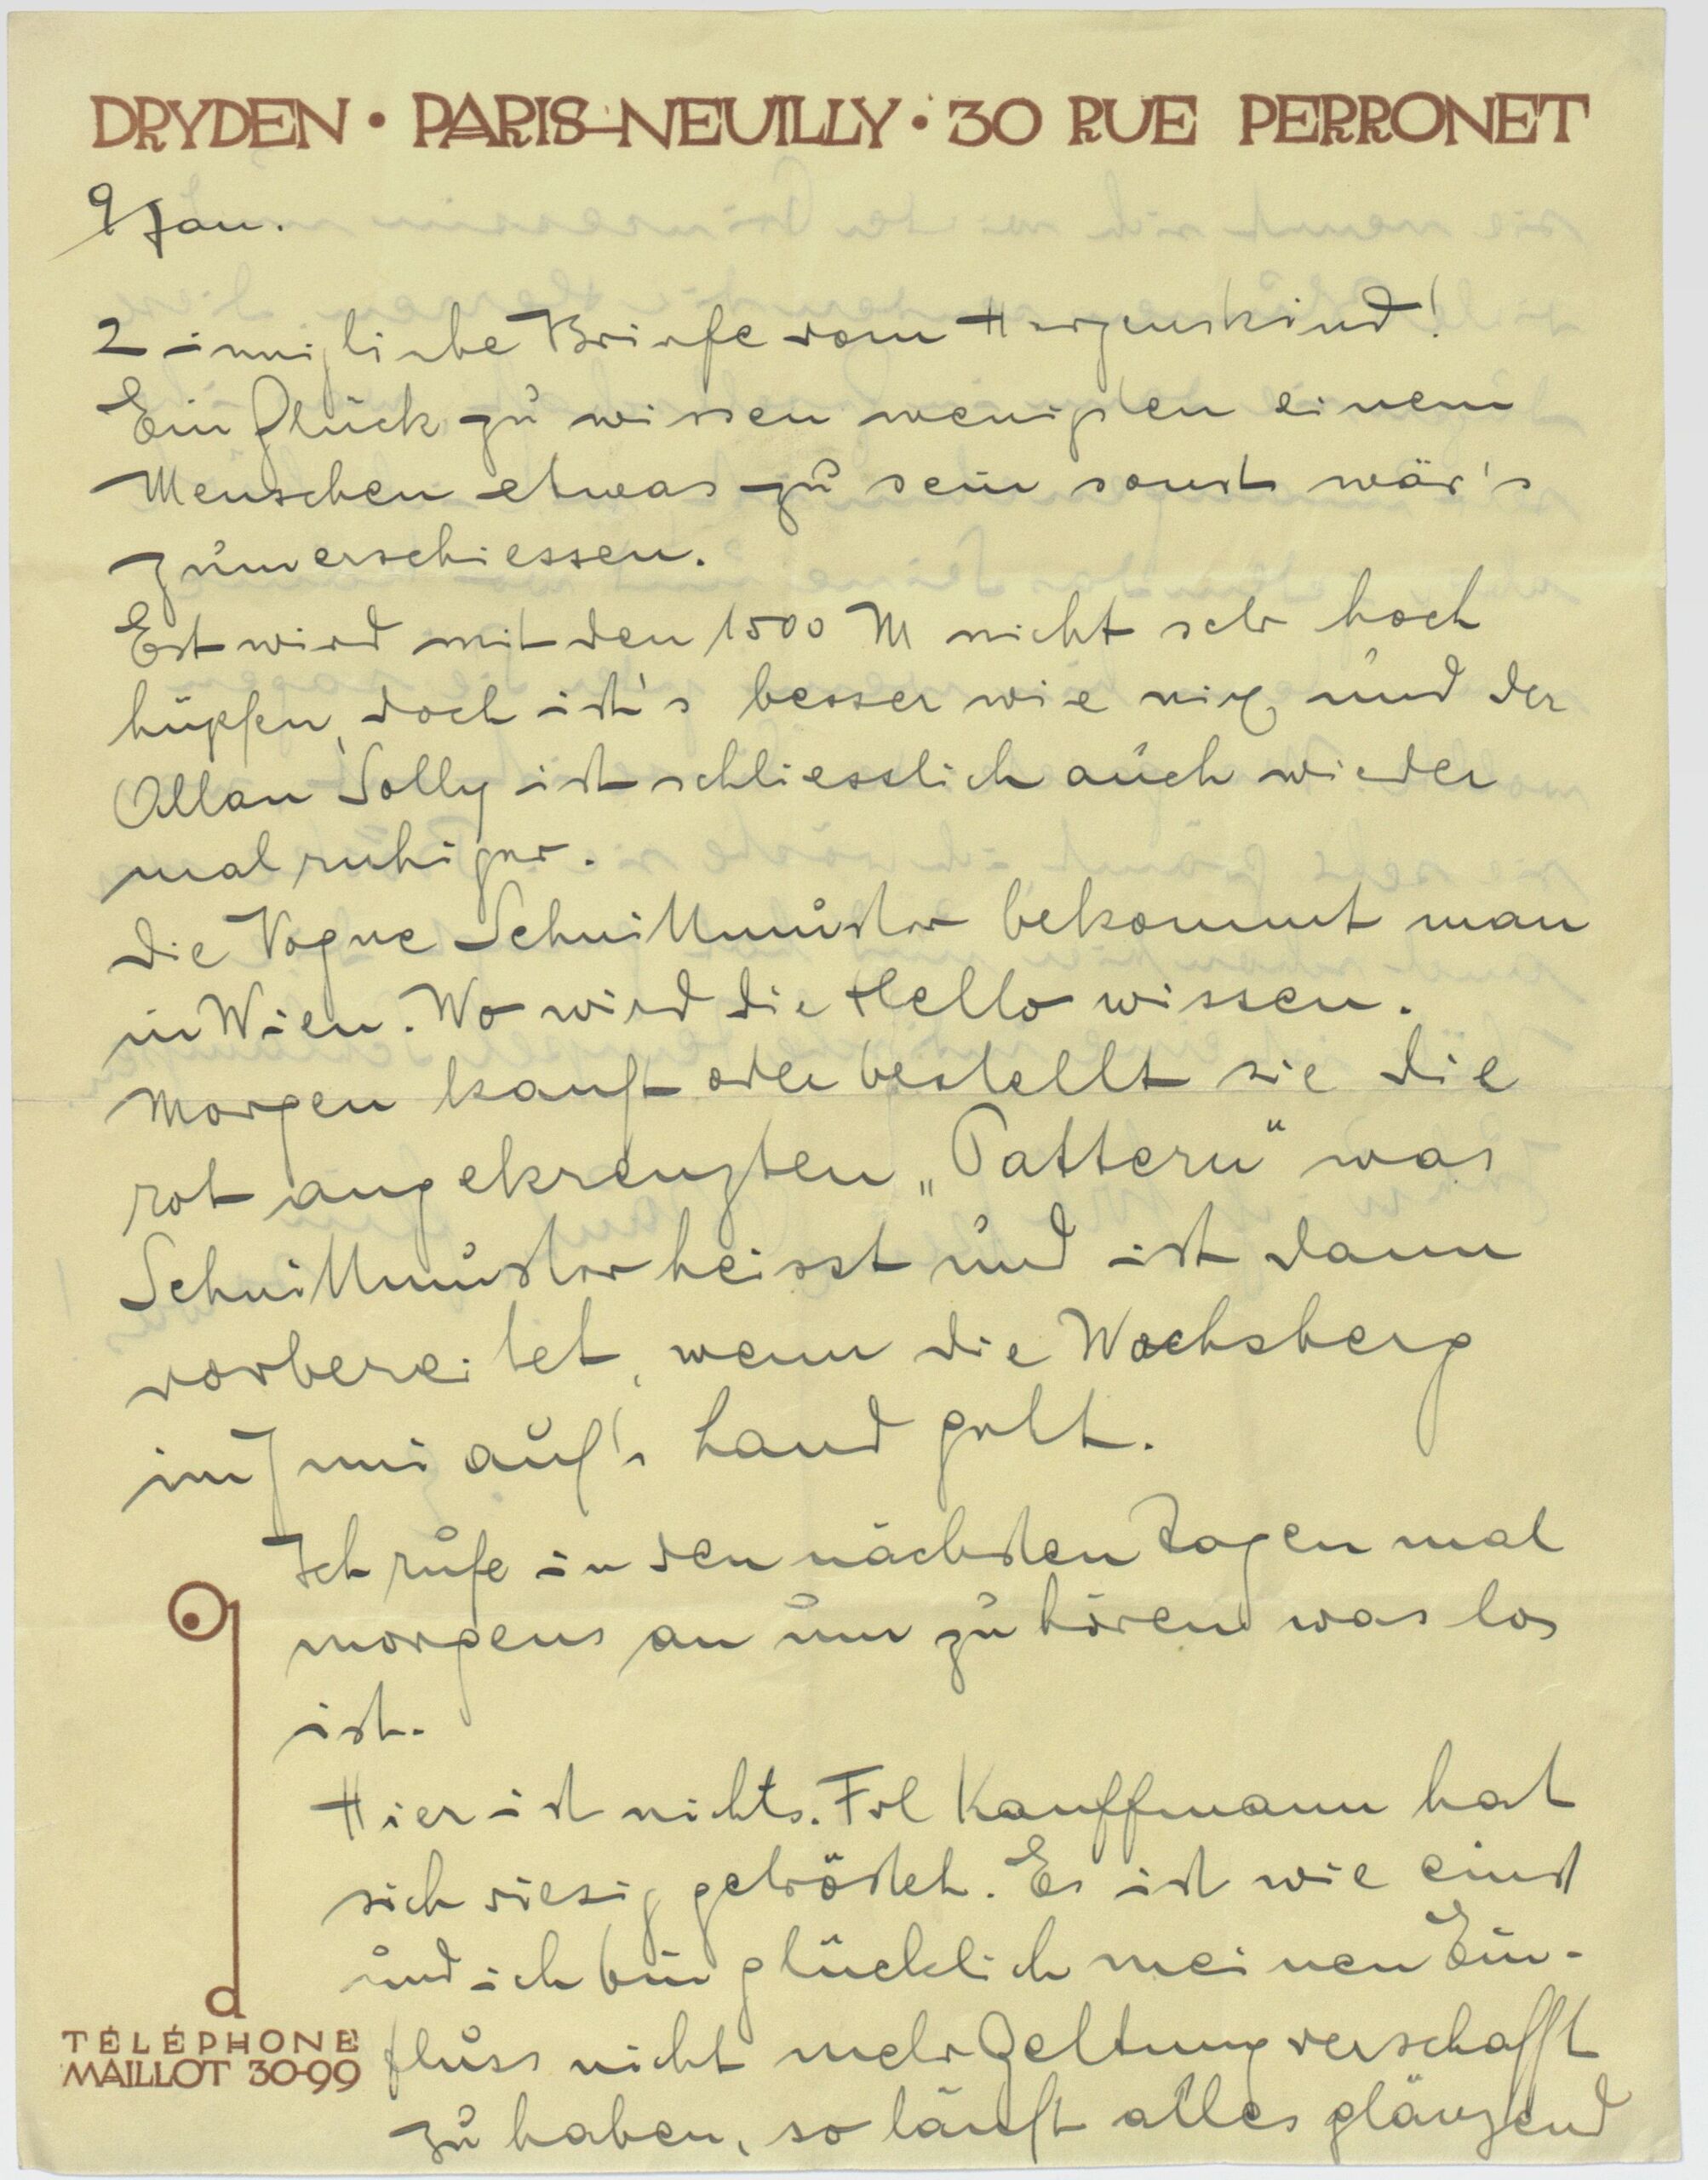 DRYDEN • PARIS-NEUILLY • 30 RUE PERRONET
9 Jan.
2 innigliebe Briefe vom Herzenskind!
Ein Glück zu wissen wenigsten einem
Menschen etwas zu sein sonst wär's
zum erschiessen.
Est wird mit den 1500 M nicht sehr hoch
hüpfen, doch ist's besser wie nix und der
Allan Solly ist schliesslich auch wieder
mal ruhiger.
Die Vogue Schnittmuster bekommt man
in Wien. Wo wird die Hello wissen.
Morgen kauft oder bestellt sie die
rot angekreuzten „Pattern" was
Schnittmuster heisst und ist dann
vorbereitet, wenn die Wachsberg
im Juni auf's Land geht.
Ich rufe in den nächsten Tagen mal
morgens an um zu hören was los
ist.
Hier ist nichts. Frl Kauffmann hat
sich riesig getröstet. Es ist wie einst
und ich bin glücklich meinen Ein-
fluss nicht mehr Geltung verschafft
zu haben, so läuft alles glänzend
d
TÉLÉPHONE
MAILLOT 30-99